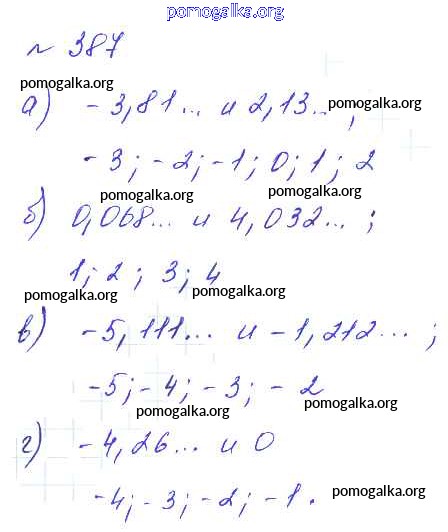 pomogalka.org
№ 387
pomogalka.org
а) -3,81... и 2,13... ; pomogalka.org
-3; -2; -1; 0; 1; 2
pomogalka.org pomogalka.org
б) 0,068... и 4,032... ;
1; 2; 3; 4
pomogalka.org pomogalka.org
в) -5,111... и -1,212... ;
-5; -4; -3; -2
pomogalka.org pomogalka.org
г) -4,26... и 0
-4; -3; -2; -1. pomogalka.org